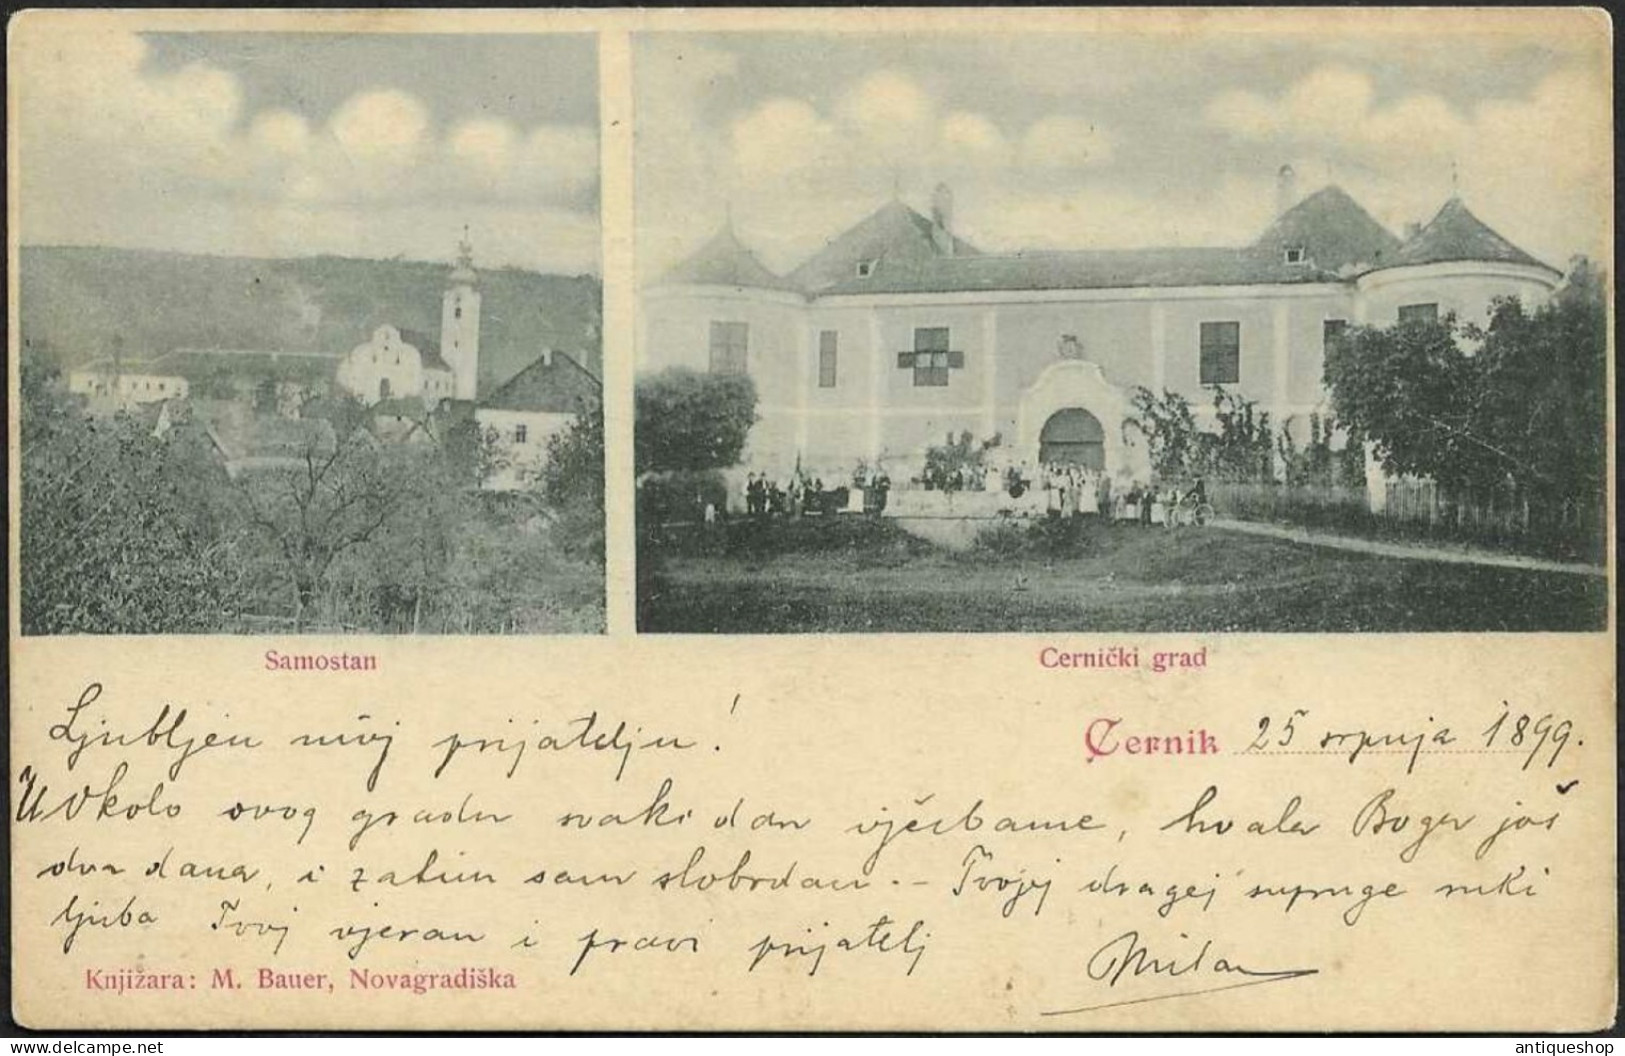 Samostan
Cernički grad
Ljubljeni moj prijatelju!
Cernik 25 srpnja 1899.
Uokolo ovog grada svaki dan vježbamo, hvala Bogu još
dva dana, i zatim sam slobodan. – Tvojoj dragoj supruge ruki
ljuba Tvoj vjeran i pravi prijatelj
Milan
Knjižara: M. Bauer, Novagradiška
delcampe.net
antiqueshop